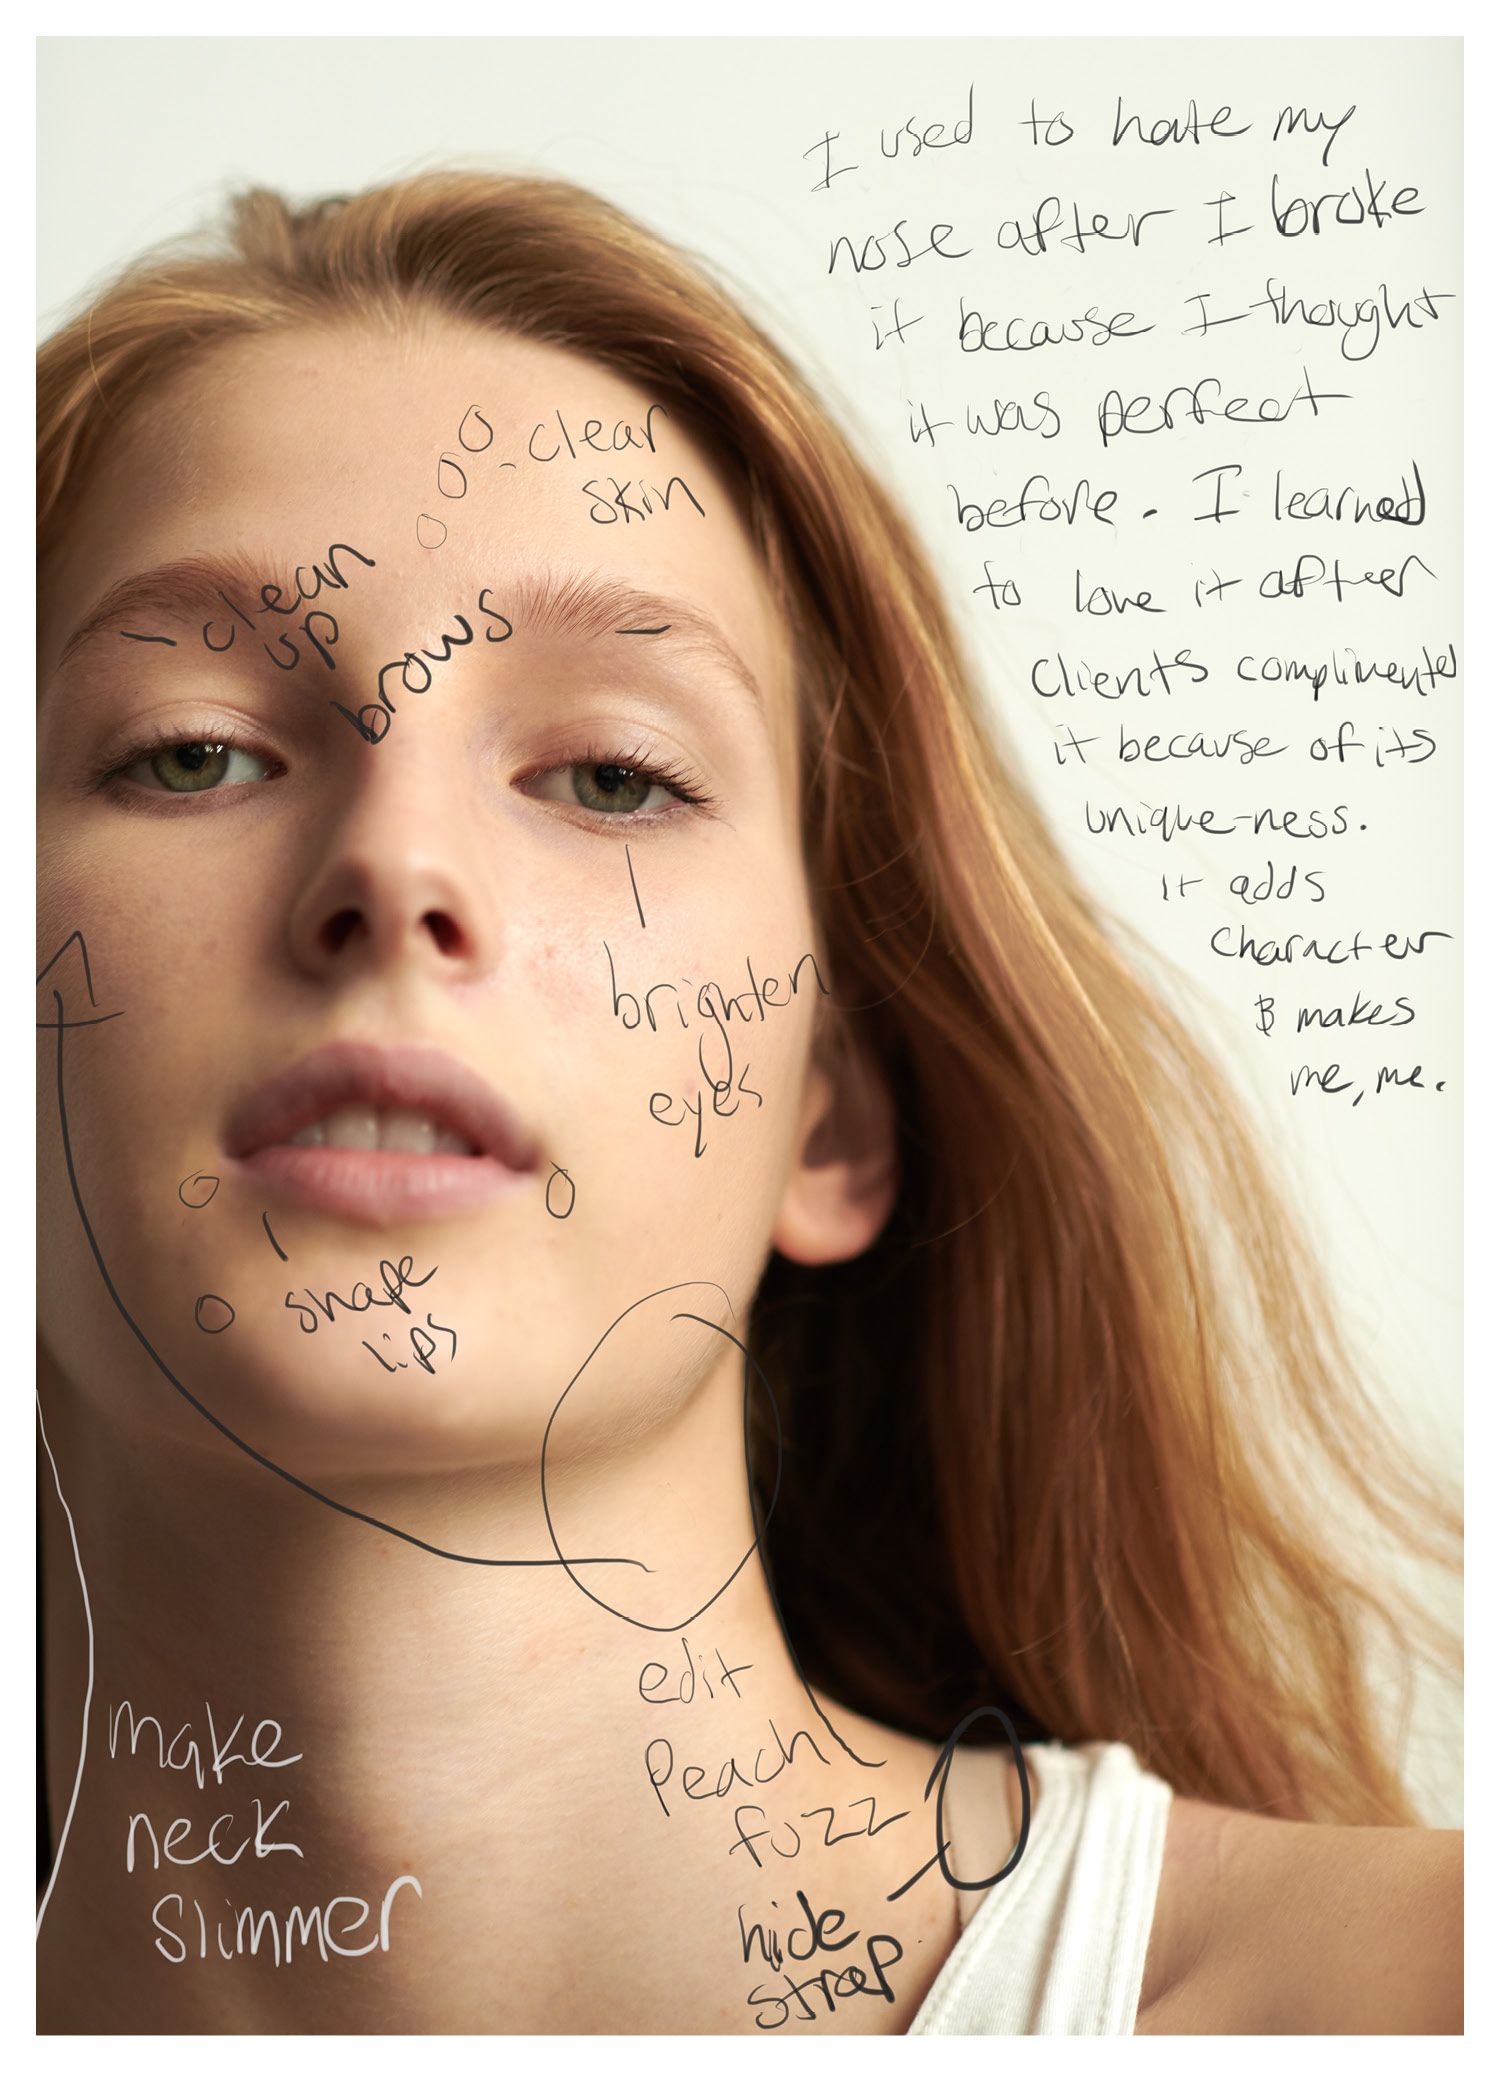 I used to hate my
nose after I broke
it because I thought
it was perfect
before. I learned
to love it after
clients complimented
it because of its
unique-ness.
it adds
character
& makes
me, me.
- clear
skin
clean
up
brows
brighten
eyes
shape
lips
edit
peach
fuzz
make
neck
slimmer
hide
strap